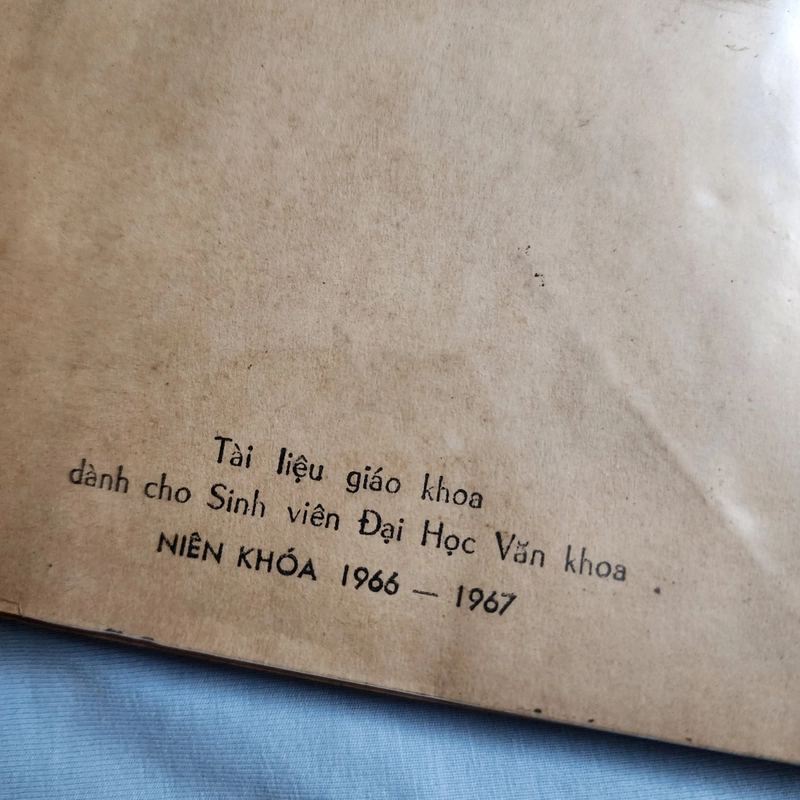 Tài liệu giáo khoa
dành cho Sinh viên Đại Học Văn khoa
NIÊN KHÓA 1966 — 1967